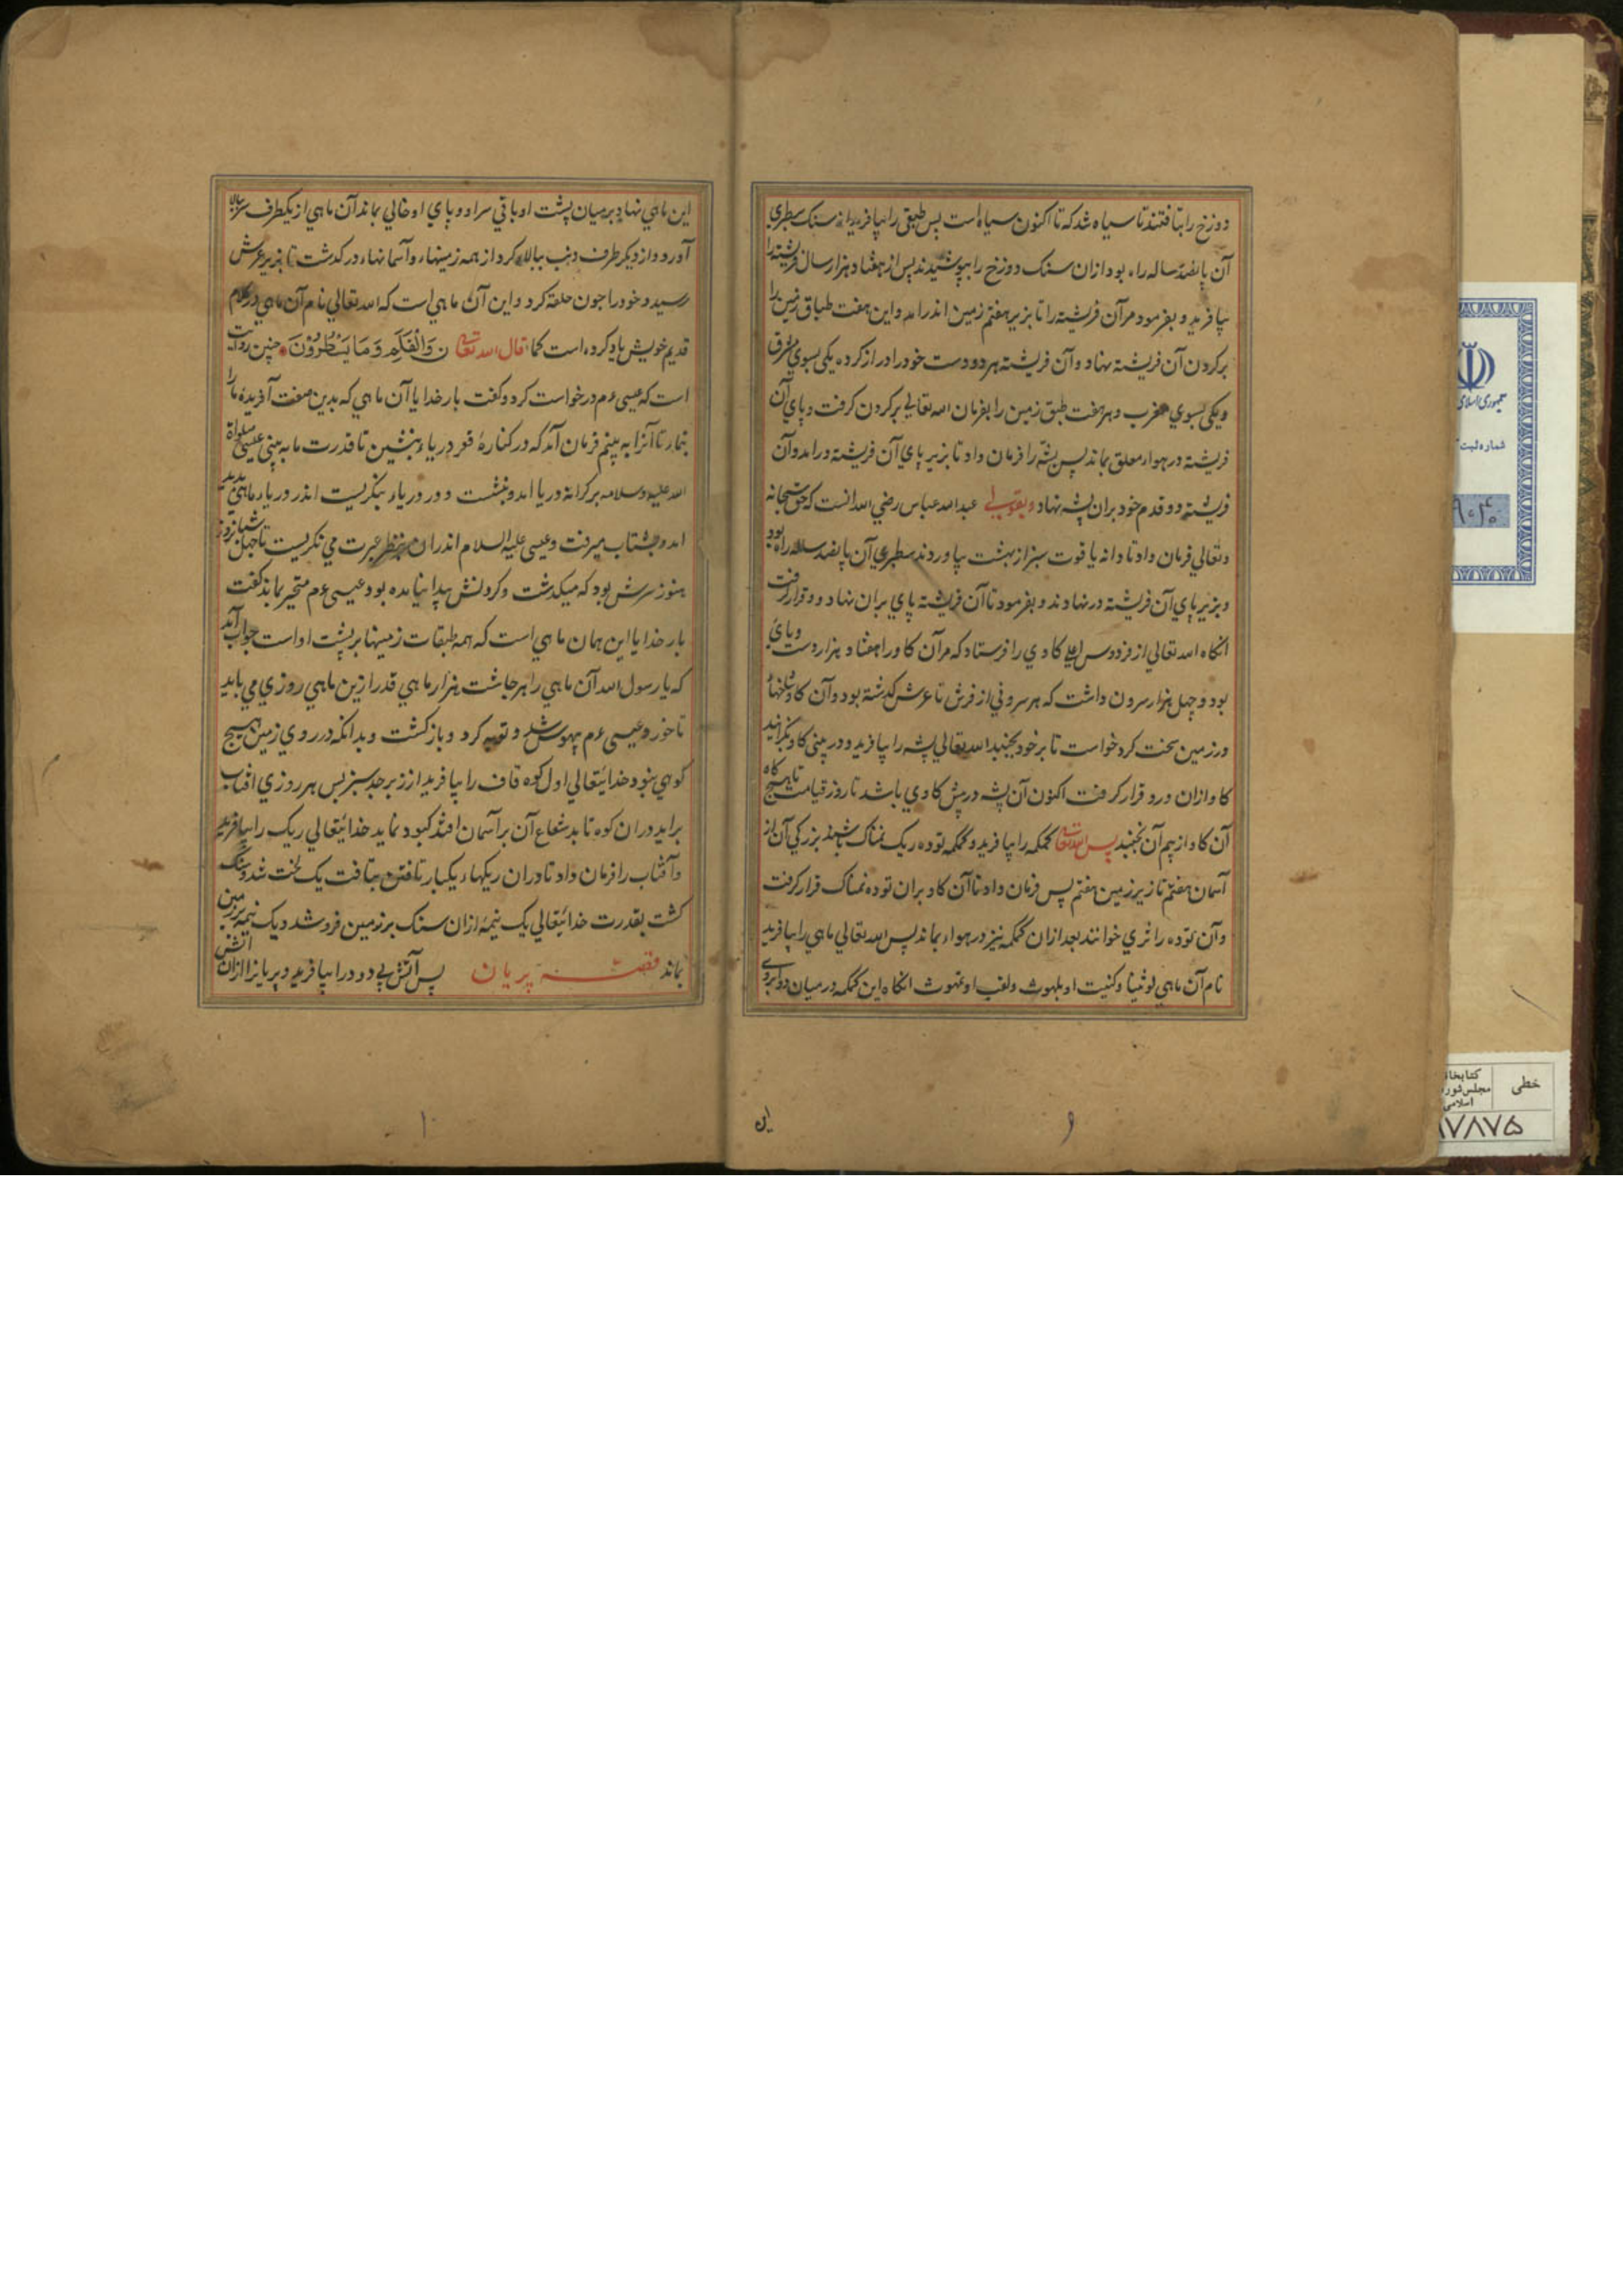 دوزخ را بتافتند تا سیاه شد که تا اکنون سیاه است پس طبقی را بیافرید از سنک سطبری
آن پانصد ساله راه بود ازان سنک دوزخ را بپوشیدند پس از هفتاد هزار سال فرشته را
بیافرید و بفرمود مر آن فریشته را تا بزیر هفتم زمین اندر امد و این هفت طباق زمین را
بر کردن آن فریشته نهاد و آن فریشته هر دو دست خود را دراز کرده یکی بسوی شرق
و یکی بسوی مغرب و هر هفت طبق زمین را بفرمان الله تعالی بر کردن کرفت و پای آن
فریشته در هوا معلق بماند پس پشه را فرمان داد تا بزیر پای آن فریشته درامد و آن
فریشته دو قدم خود بران پشه نهاد و بقولی عبد الله عباس رضی الله انست که حق سبحانه
و تعالی فرمان داد تا دانه یاقوت سبز از بهشت بیاوردند سطبری آن پانصد ساله راه بود
و بزیر پای آن فریشته در نهادند و بفرمود تا آن فریشته پای بران نهاد و قرار کرفت
انکاه الله تعالی از فردوس اعلی کاوی را فرستاد که مر آن کاو را هفتاد هزار دست و پای
بود و چهل هزار سرون داشت که هر سرونی از فرش تا عرش کذشته بود و آن کاو شاخها
در زمین سخت کرد خواست تا بر خود بجنبد الله تعالی پشه را بیافرید و در بینی کاو بکزانید
کاو ازان درد قرار کرفت اکنون آن پشه در پیش کاوی باشد تا روز قیامت تا هیچ کاه
آن کاو از بیم آن نجنبد پس الله تعالی کمکمه را بیافرید و کمکمه توده ریک نمناک باشد بزرکی آن از
آسمان هفتم تا زیر زمین هفتم پس فرمان داد تا آن کاو بران توده نمناک قرار کرفت
و آن توده را ثری خوانند بعد ازان کمکمه نیز در هوا بماند پس الله تعالی ماهی را بیافرید
نام آن ماهی لوثیا و کنیت او بلهوث و لقب او عهوث انکاه این کمکمه در میان دو ابروی
این
۹
این ماهی نهاد بر میان پشت او باقی سر او و پای او خالی بماند آن ماهی از یکطرف سر ببالا
آورد و از دیکر طرف دنب ببالا کرد از همه زمینها و آسمانها درکذشت تا بزیر عرش
رسید و خود را جون حلقه کرد و این آن ماهی است که الله تعالی نام آن ماهی در کلام
قدیم خویش یاد کرده است کما قال الله تعالی ن وَالْقَلَمِ وَمَا يَسْطُرُوْنَ چنین روایت
است که عیسی ءم درخواست کرد و کفت بار خدایا آن ماهی که بدین صفت آفریدهٔ ما را
بنمار تا آنرا به بینم فرمان آمد که در کنارهٔ قعر دریا بنشین تا قدرت ما به بینی عیسی صلواة
الله علیه و سلامه بر کرانه دریا امد و بنشست و در دریا بنکریست اندر دریا ماهی پدید
امد و بشتاب میرفت و عیسی علیه السلام اندران بنظر عبرت می نکریست تا چهل شبانروز
هنوز سرش بود که میکذشت و کردنش پیدا نیامده بود عیسی ءم متحیر بماند کفت
بار خدایا این همان ماهی است که همه طبقات زمینها بر پشت او است جواب آمد
که یا رسول الله آن ماهی را هر چاشت هزار ماهی قدر ازین ماهی روزی می باید
تا خورد عیسی ءم بیهوش شد و توبه کرد و باز کشت و بدانکه در روی زمین هیچ
کوهی نبود خدایتعالی اول کوه قاف را بیافرید از زبرجد سبز پس هر روزی افتاب
براید دران کوه تابد شعاع آن بر آسمان افتد کبود نماید خدایتعالی ریک را بیافرید
و آفتاب را فرمان داد تا دران ریکها یکبار تافتن بتافت یک لخت شد و سنک
کشت بقدرت خدایتعالی یک نیمهٔ ازان سنک بر زمین فرو شد و یک نیمه بر زمین
بماند قصـــه پریان پس آتش بی دود را بیافرید و پریانرا ازان اتش
۱۰
جمهوری اسلامی
شماره ثبت
۹۰۴۰
خطی
کتابخانه
مجلس شورای
اسلامی
۱۷۸۷۵